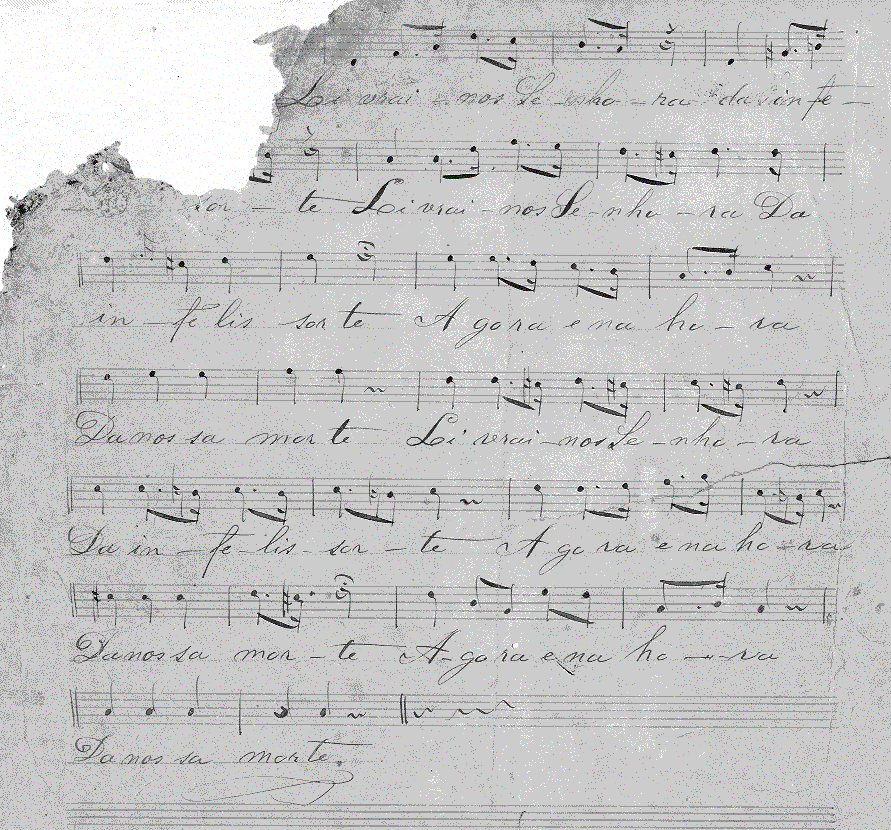 Li vrai - nos Se - nho - ra da in fe -
sor - te Li vrai - nos Se - nho - ra Da
in - fe lis sor te A go ra e na ho - ra
Da nos sa mor te Li vrai - nos Se - nho - ra
Da in - fe - lis - sor - te A go ra e na ho - ra
Da nos sa mor - te A - go ra e na ho - ra
Da nos sa morte.